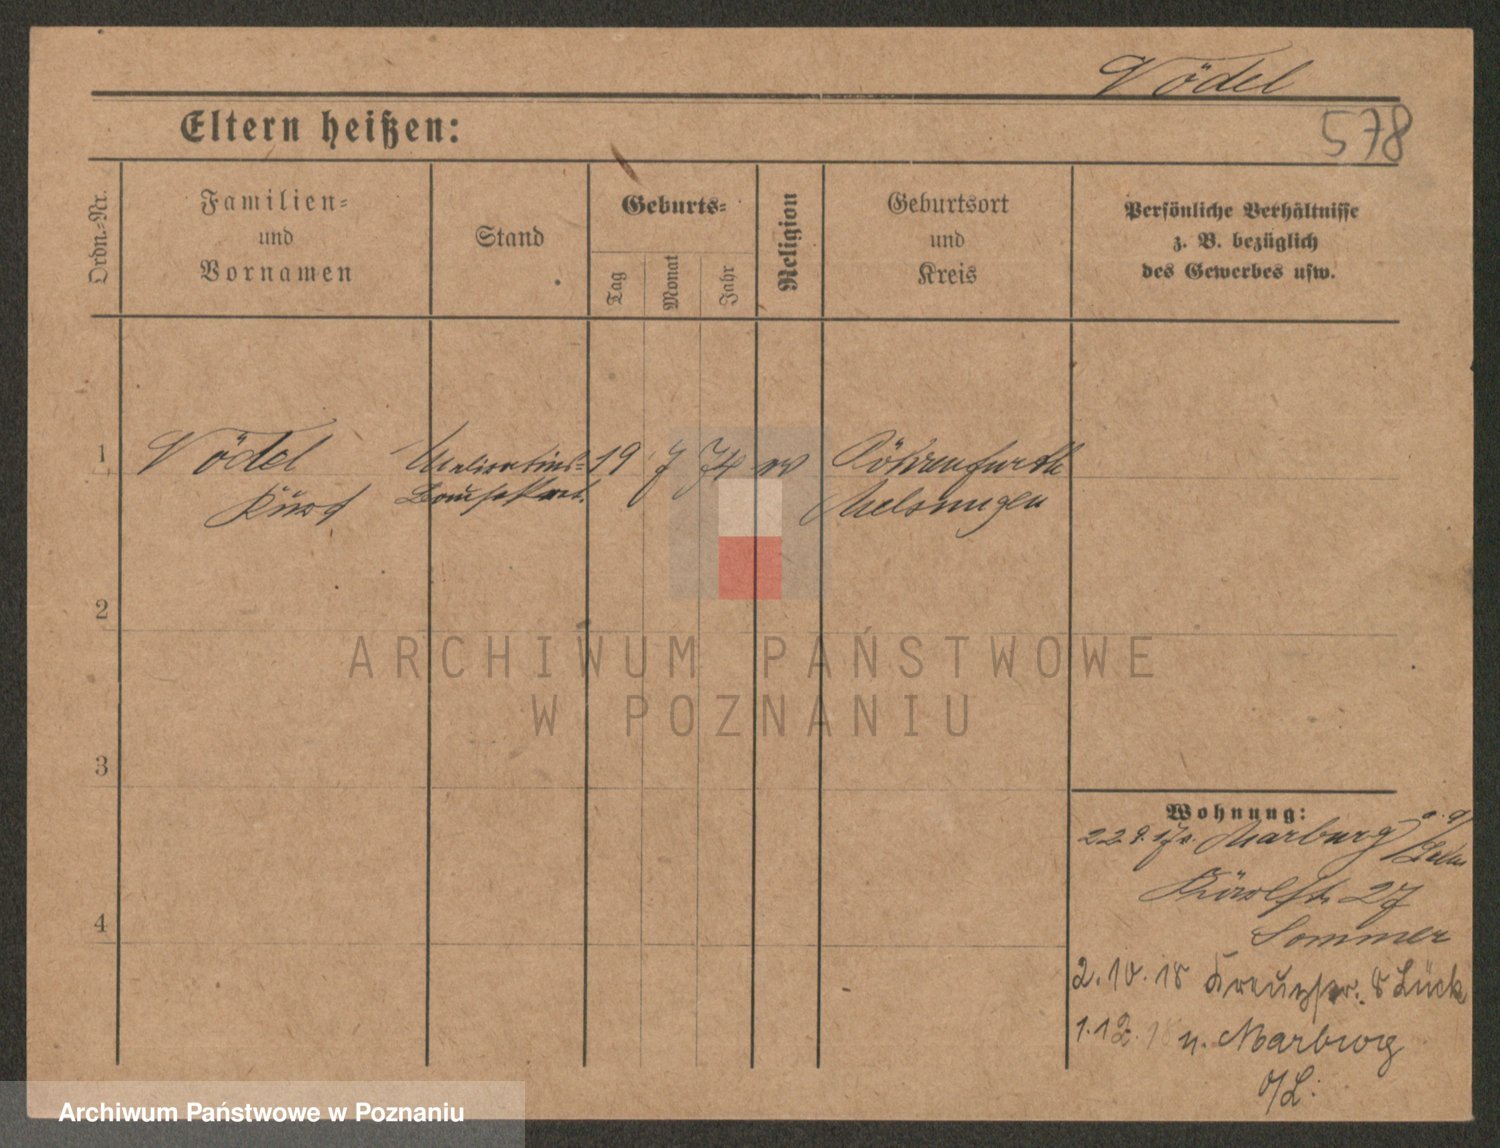 Vödel
Eltern heißen:
578
Ordn.-Nr.
Familien-
und
Vornamen
Stand
Geburts-
Tag
Monat
Jahr
Religion
Geburtsort
und
Kreis
Persönliche Verhältnisse
z. B. bezüglich
des Gewerbes usw.
1
Vödel 19 7 74 ev Röhrenfurth
Kurt Melsungen
2
3
4
Wohnung:
22 9. 17 v. Marburg
27
Sommer
2.10.18 Kreuzstr. 8 Lück
1.12.18 n. Marburg
a/L.
ARCHIWUM PAŃSTWOWE
W POZNANIU
Archiwum Państwowe w Poznaniu